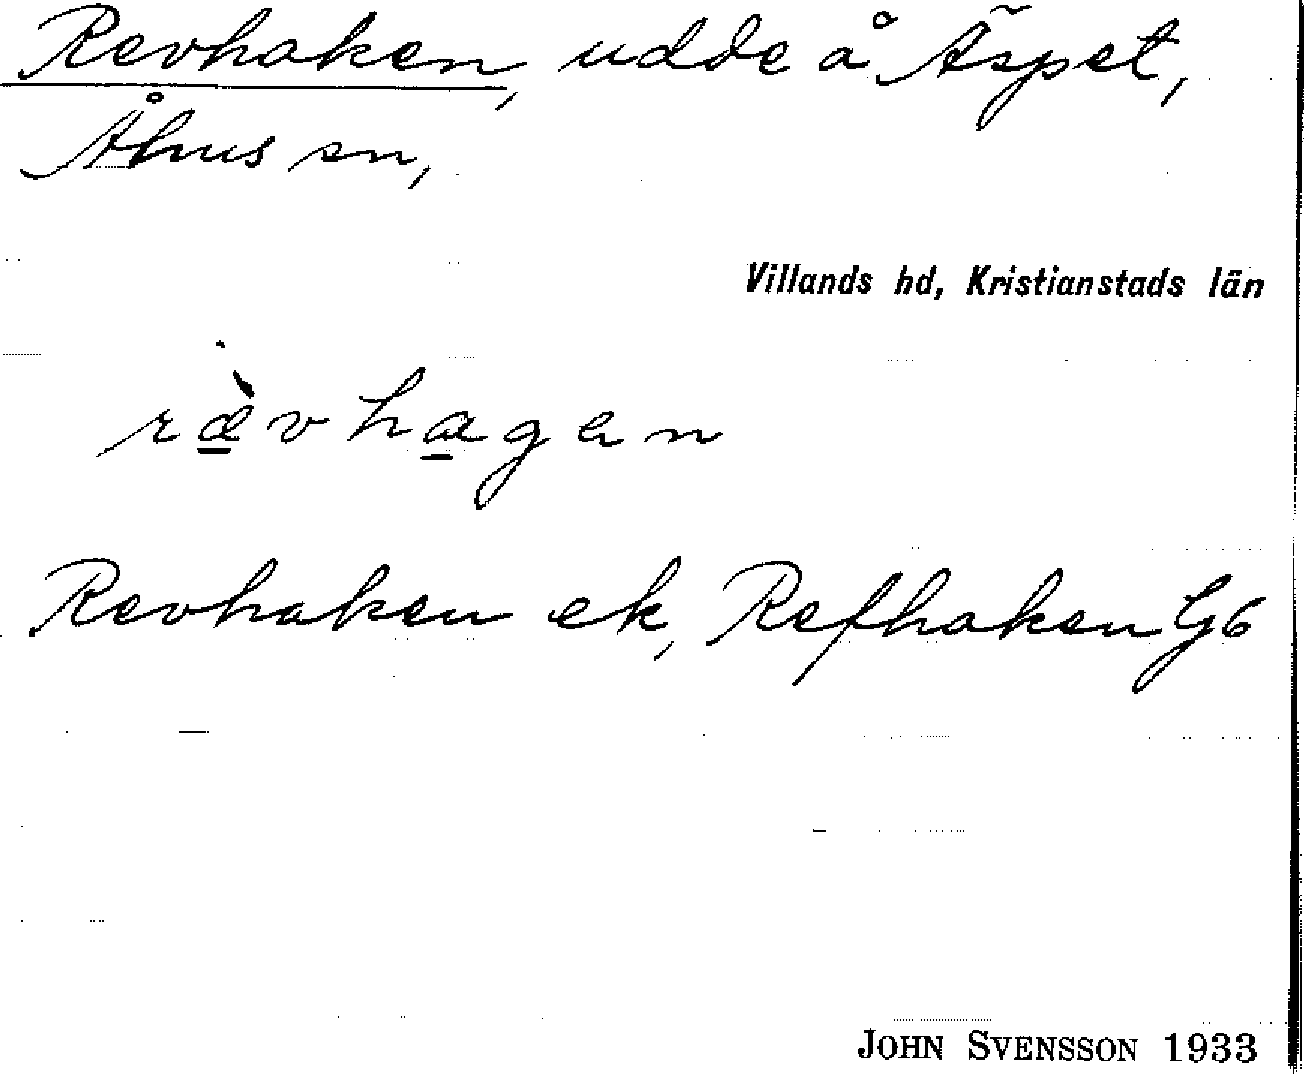 Revhaken, udde å Äspet,
Åhus sn,
Villands hd, Kristianstads län
rævhagen
Revhaken ek, Refhaken G6
JOHN SVENSSON 1933